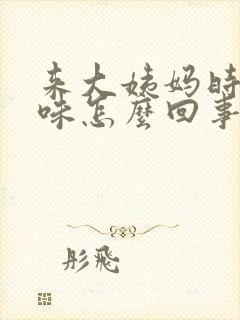 来大姨妈时
咪怎麼回事
彤飛